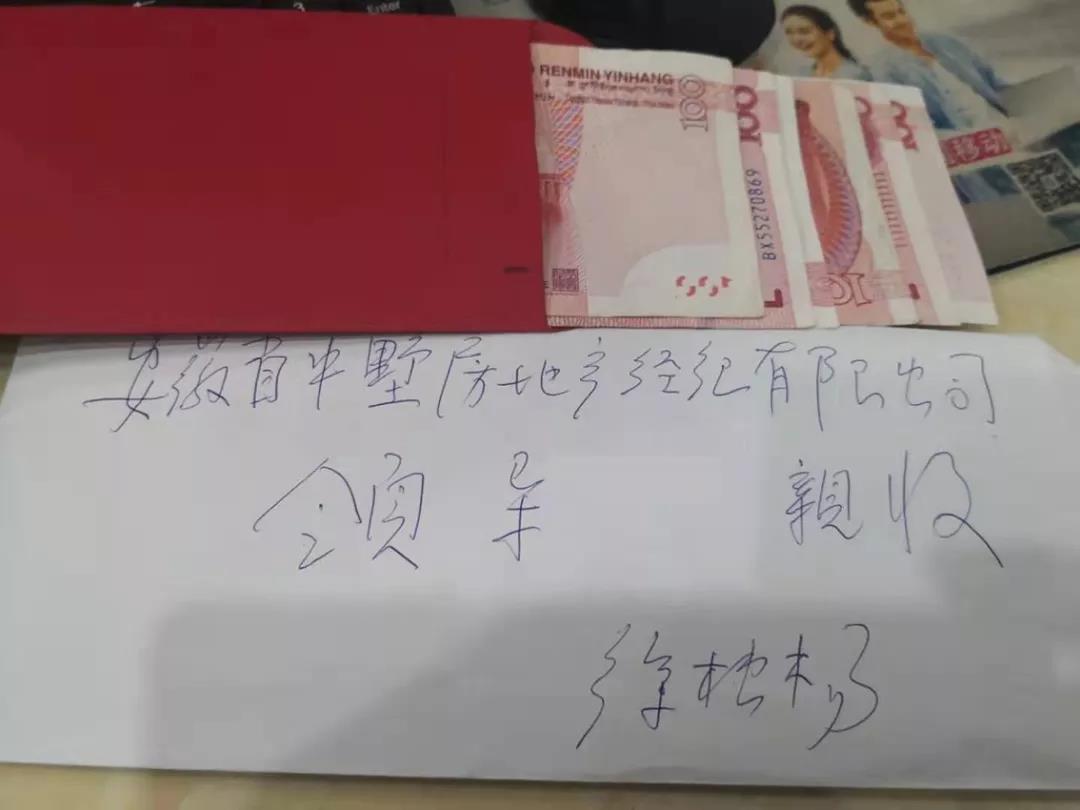 Enter
3
RENMIN YINHANG
100
100
BX55270869
移动
安徽省半墅房地产经纪有限公司
领导 親收
徐